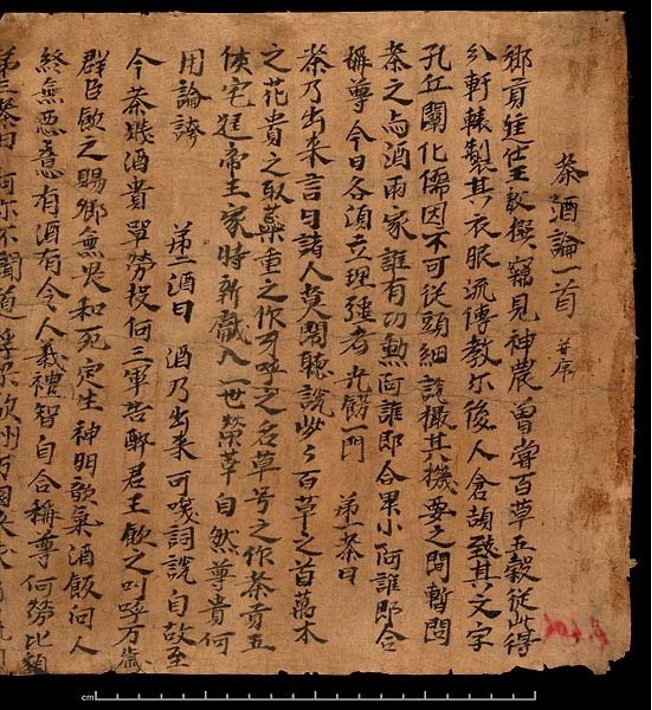 茶酒論一首 并序
鄉貢進士王敷撰竊見神農曾嘗百草五穀從此得
分軒轅製其衣服流傳教示後人倉頡致其文字
孔丘闡化儒因不可從頭細說撮其機要之間暫問
茶之与酒兩家誰有功勳阿誰即合卑小阿誰即合
稱尊今日各須立理強者先餝一門 第一茶曰
茶乃出来言曰諸人莫鬧聽說些々百草之首萬木
之花貴之取蘂重之呼之名草号之作茶貢五
侯宅帝王家時新獻入一世榮華自然尊貴何
用論誇 第二酒曰 酒乃出来可咲詞說自古至
今茶賤酒貴單勞投河三軍告醉君王飲之叫呼万歲
群臣飲之賜卿無畏和死定生神明歆氣酒飯向人
終無惡意有酒有令人義禮智自合稱尊何勞比類
第三茶曰阿你不聞道浮梁歙州万國来求
cm